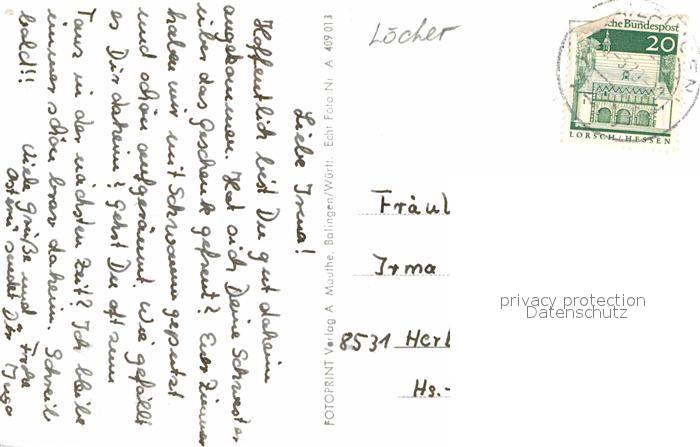 Liebe Irma!
Hoffentlich bist Du gut daheim
angekommen. Hat sich Deine Schwester
über das Geschenk gefreut? Euer Zimmer
haben wir mit Schwamm geputzt
und schön aufgeräumt. Wie gefällt
es Dir daheim? gehst Du oft zum
Tanz in der nächsten Zeit? Ich bleibe
immer schön brav daheim. Schreib
bald!!! Viele Grüße und Frohe
Ostern sendet Dir Inge
FOTOPRINT Verlag A Mauthe, Balingen/Württ. Echt Foto Nr A 409 013
Löcher
che Bundespost
20
LORSCH/HESSEN
Fräul
Irma
8531 Herl
Hs.-
privacy protection
Datenschutz